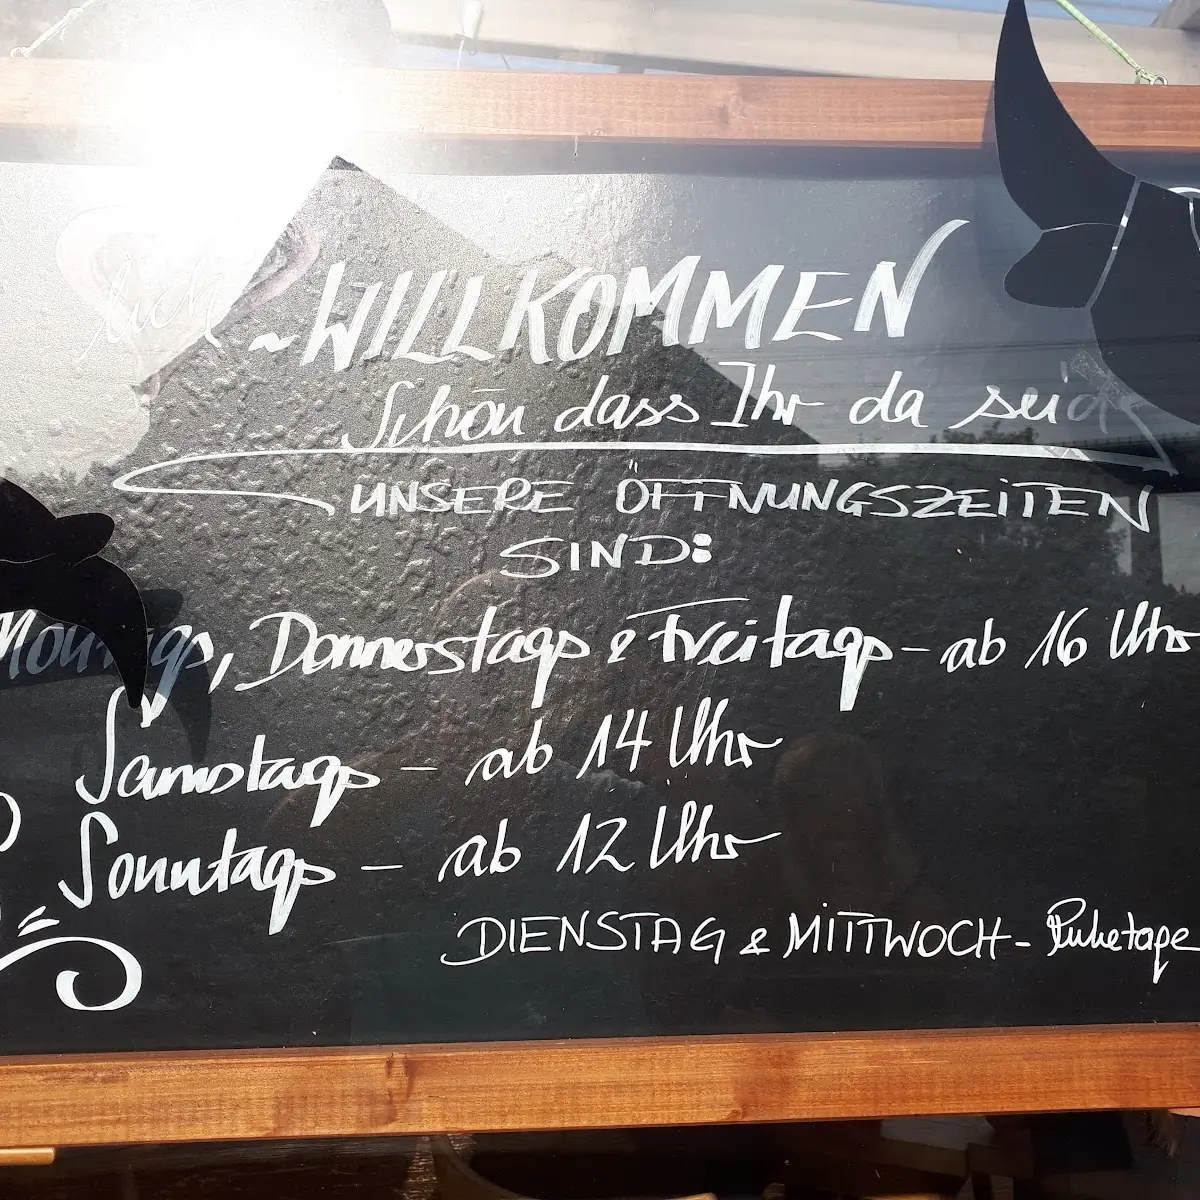 lich ~WILLKOMMEN
Schön dass Ihr da seid
UNSERE ÖFFNUNGSZEITEN
SIND:
Montags, Donnerstags & Freitags - ab 16 Uhr
Samstags - ab 14 Uhr
Sonntags - ab 12 Uhr
DIENSTAG & MITTWOCH - Ruhetage